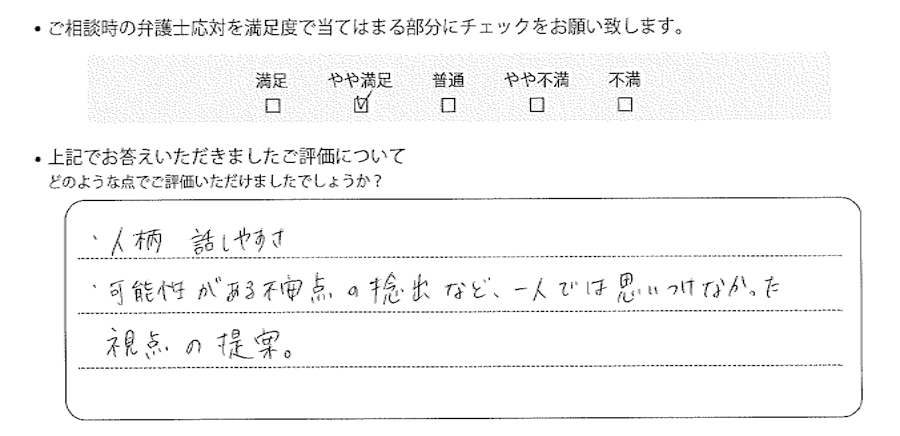 ・ご相談時の弁護士応対を満足度で当てはまる部分にチェックをお願い致します。
満足 やや満足 普通 やや不満 不満
□ ☑ □ □ □
・上記でお答えいただきましたご評価について
どのような点でご評価いただけましたでしょうか?
・人柄 話しやすさ
・可能性がある不審点の捻出など、一人では思いつけなかった
視点の提案。